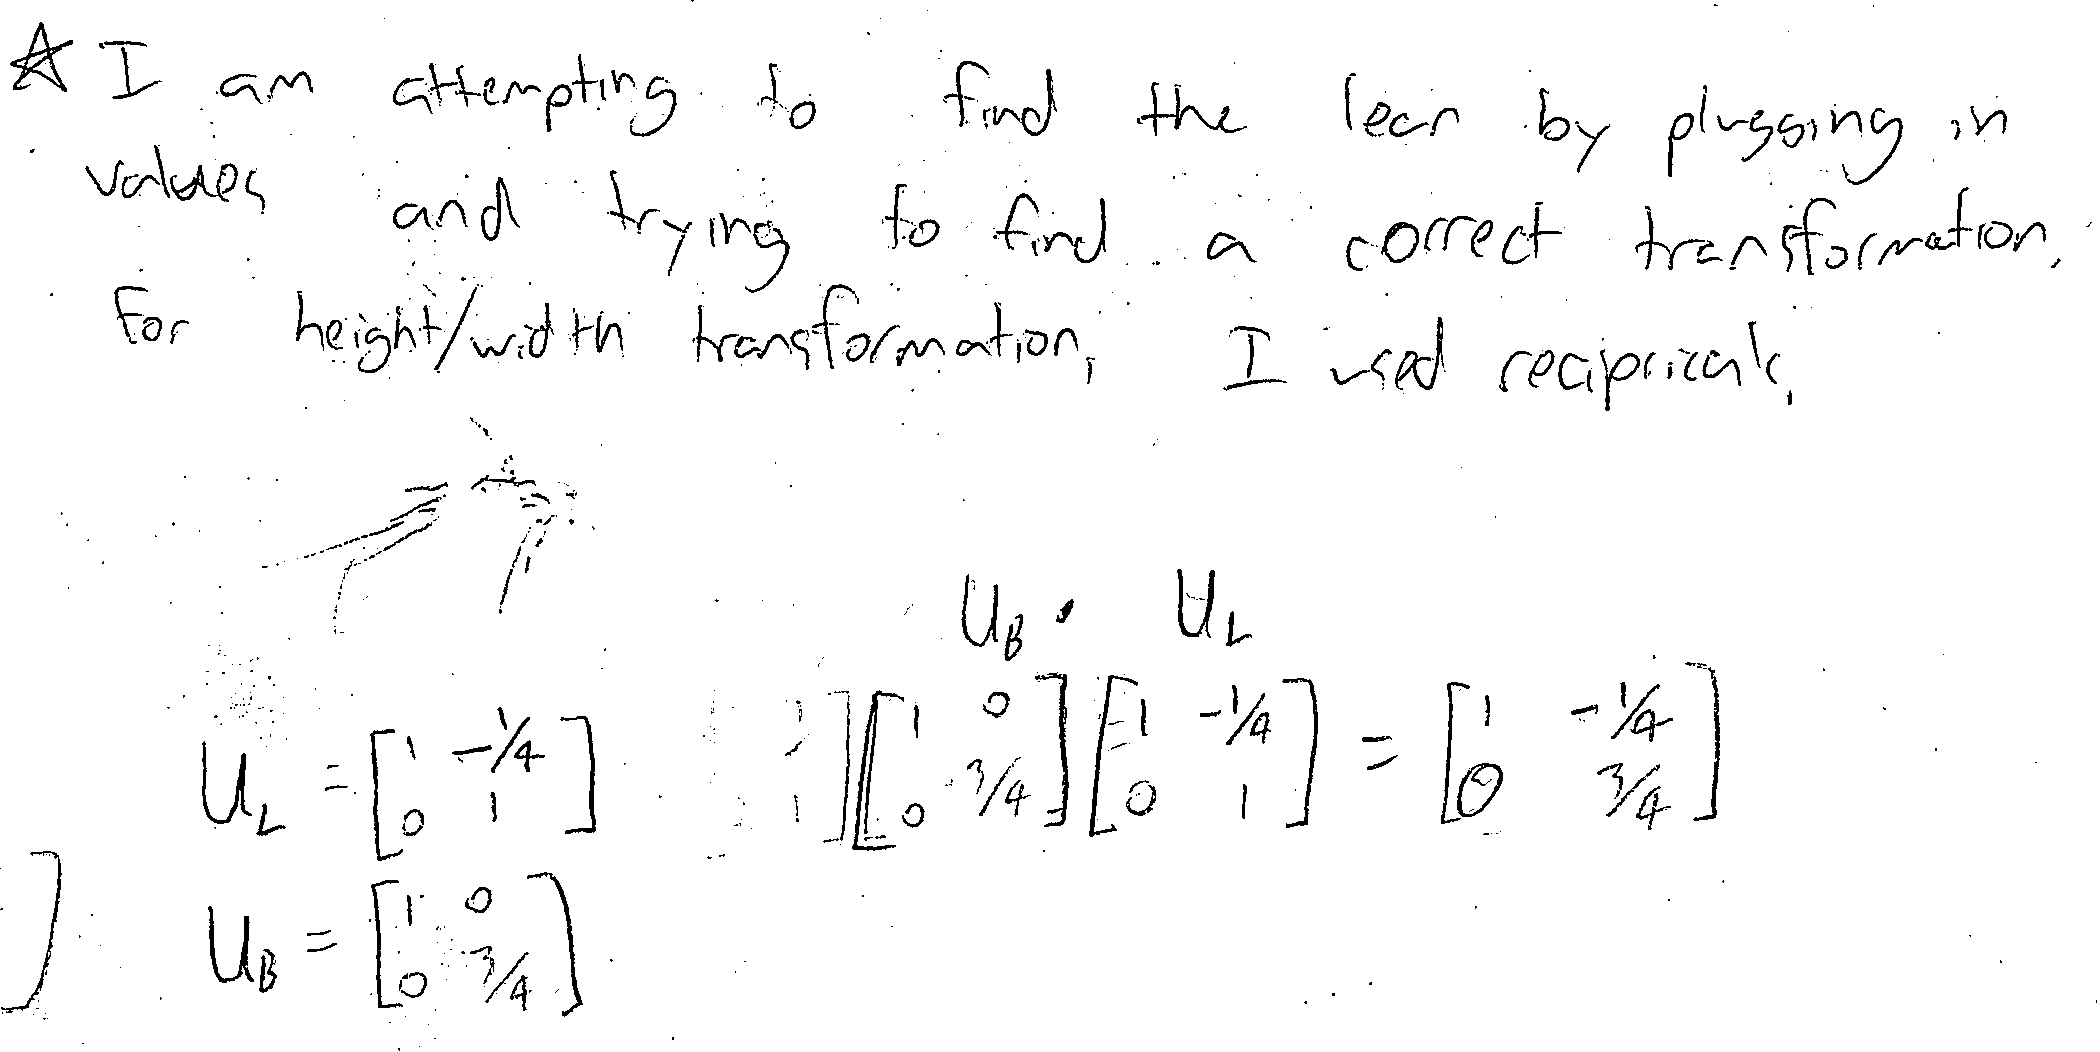 ☆ I am attempting to find the lean by plugging in
values and trying to find a correct transformation.
For height/width transformation, I used recipricals.
U_B · U_L
U_L = [1 -1/4; 0 1] [1 0; 0 3/4] [1 -1/4; 0 1] = [1 -1/4; 0 3/4]
] U_B = [1 0; 0 3/4]